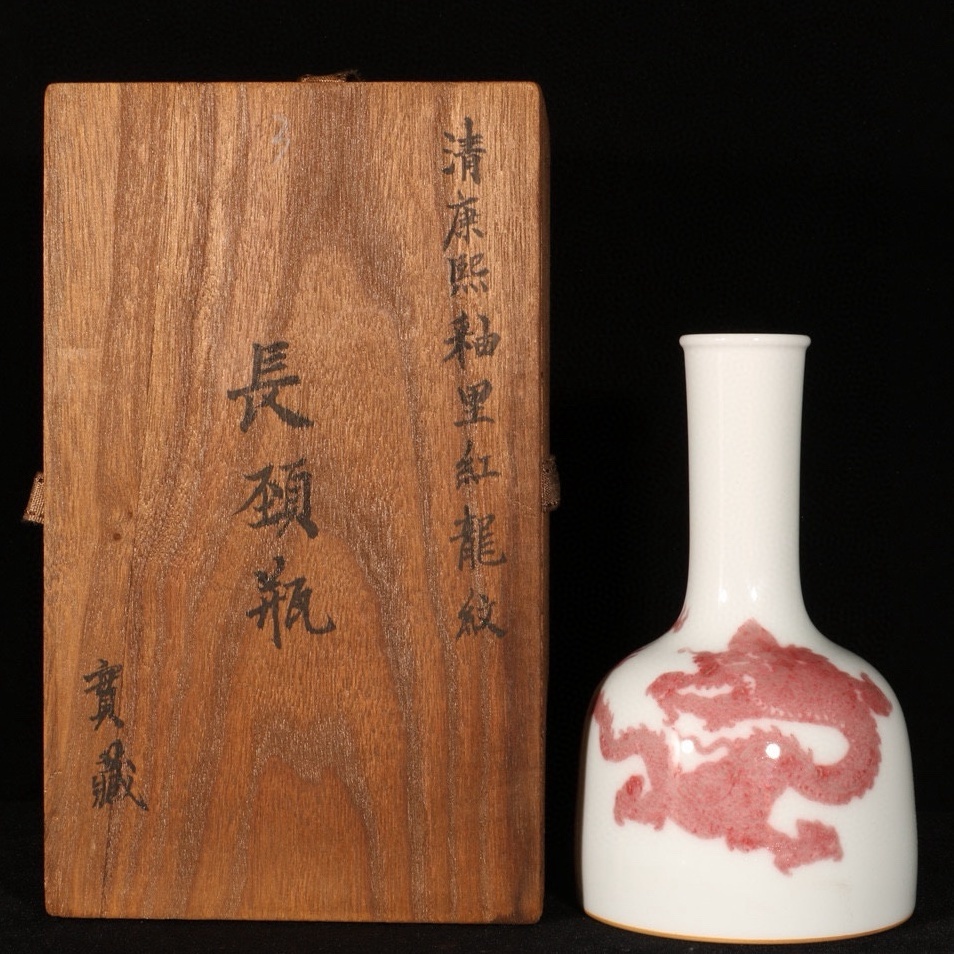 清康熙釉里紅龍紋
長頚瓶
寳藏